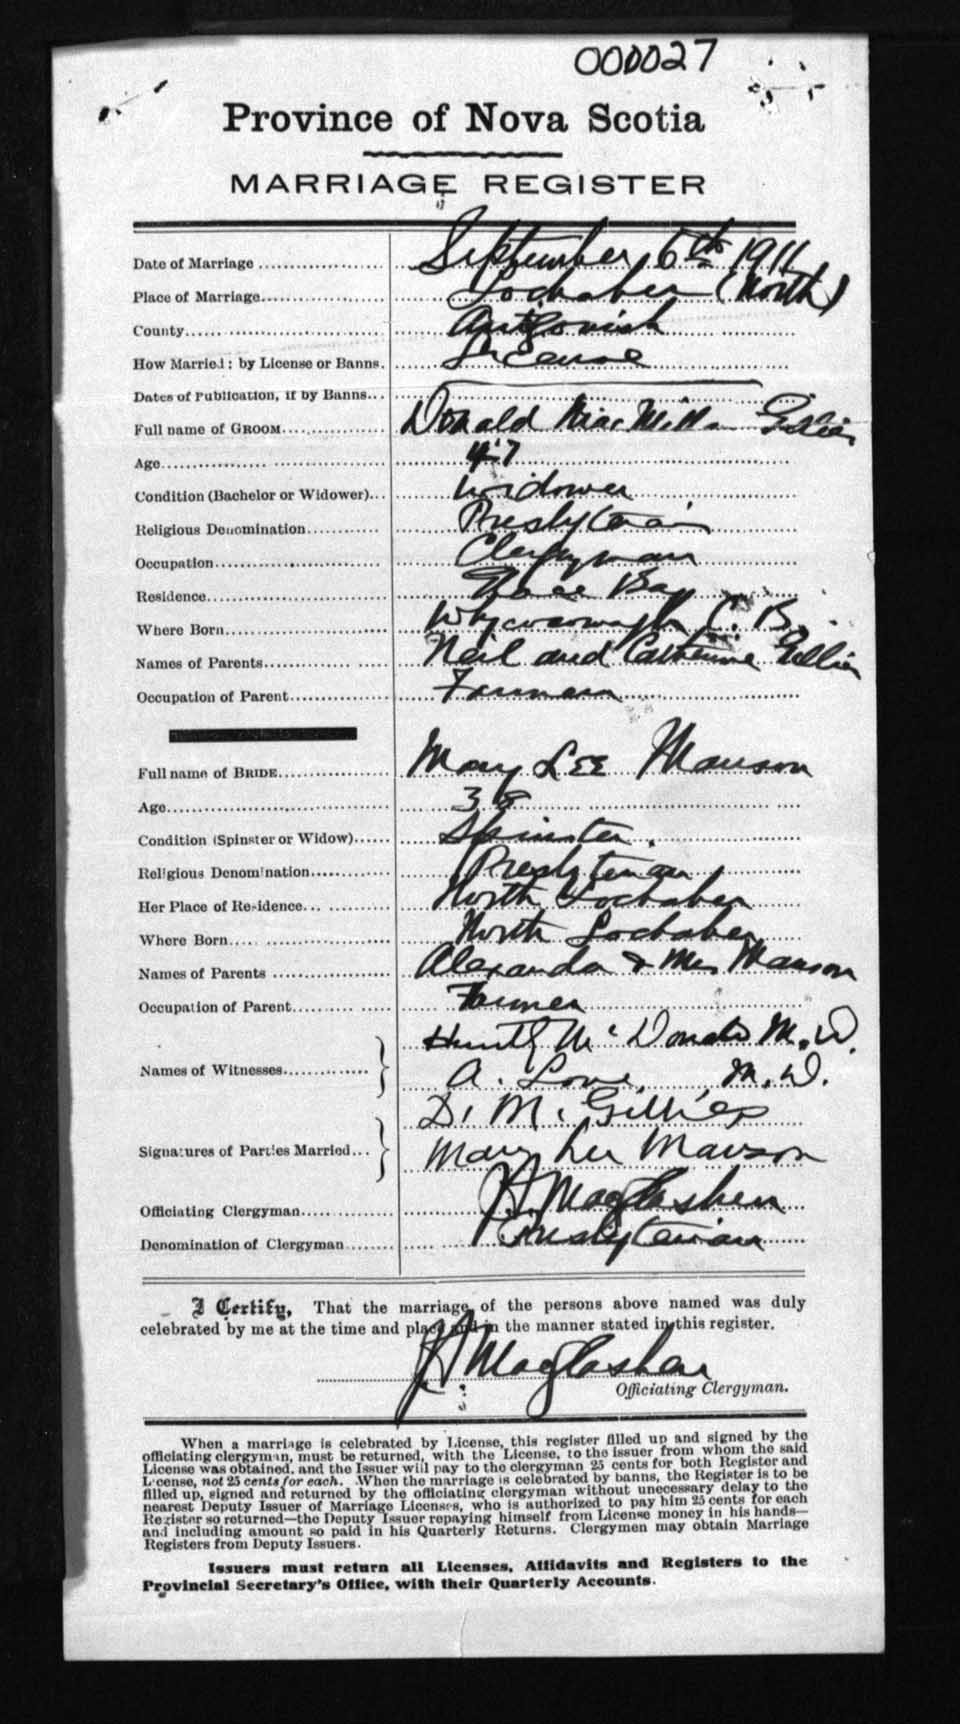 000027
Province of Nova Scotia
MARRIAGE REGISTER
Date of Marriage September 6th 1911
Place of Marriage Lochaber (North)
County Antigonish
How Married: by License or Banns. License
Dates of Publication, if by Banns
Full name of GROOM Donald MacMillan Gillies
Age 47
Condition (Bachelor or Widower) Widower
Religious Denomination Presbyterian
Occupation Clergyman
Residence Glace Bay
Where Born Whycocomagh C. B.
Names of Parents Neil and Catherine Gillies
Occupation of Parent Farmer
Full name of BRIDE Mary LEE Manson
Age 38
Condition (Spinster or Widow) Spinster.
Religious Denomination Presbyterian
Her Place of Residence North Lochaber
Where Born North Lochaber
Names of Parents Alexander & Mrs Manson
Occupation of Parent Farmer
Names of Witnesses McDonald M.D.
A. Love, M.D.
Signatures of Parties Married D. M. Gillies
Mary Lee Manson
Officiating Clergyman Maglashen
Denomination of Clergyman Presbyterian
I Certify, That the marriage of the persons above named was duly
celebrated by me at the time and place and in the manner stated in this register.
Maglashen
Officiating Clergyman.
When a marriage is celebrated by License, this register filled up and signed by the
officiating clergyman, must be returned, with the License, to the issuer from whom the said
License was obtained, and the Issuer will pay to the clergyman 25 cents for both Register and
License, not 25 cents for each. When the marriage is celebrated by banns, the Register is to be
filled up, signed and returned by the officiating clergyman without unnecessary delay to the
nearest Deputy Issuer of Marriage Licenses, who is authorized to pay him 25 cents for each
Register so returned—the Deputy Issuer repaying himself from License money in his hands—
and including amount so paid in his Quarterly Returns. Clergymen may obtain Marriage
Registers from Deputy Issuers.
Issuers must return all Licenses, Affidavits and Registers to the
Provincial Secretary's Office, with their Quarterly Accounts.